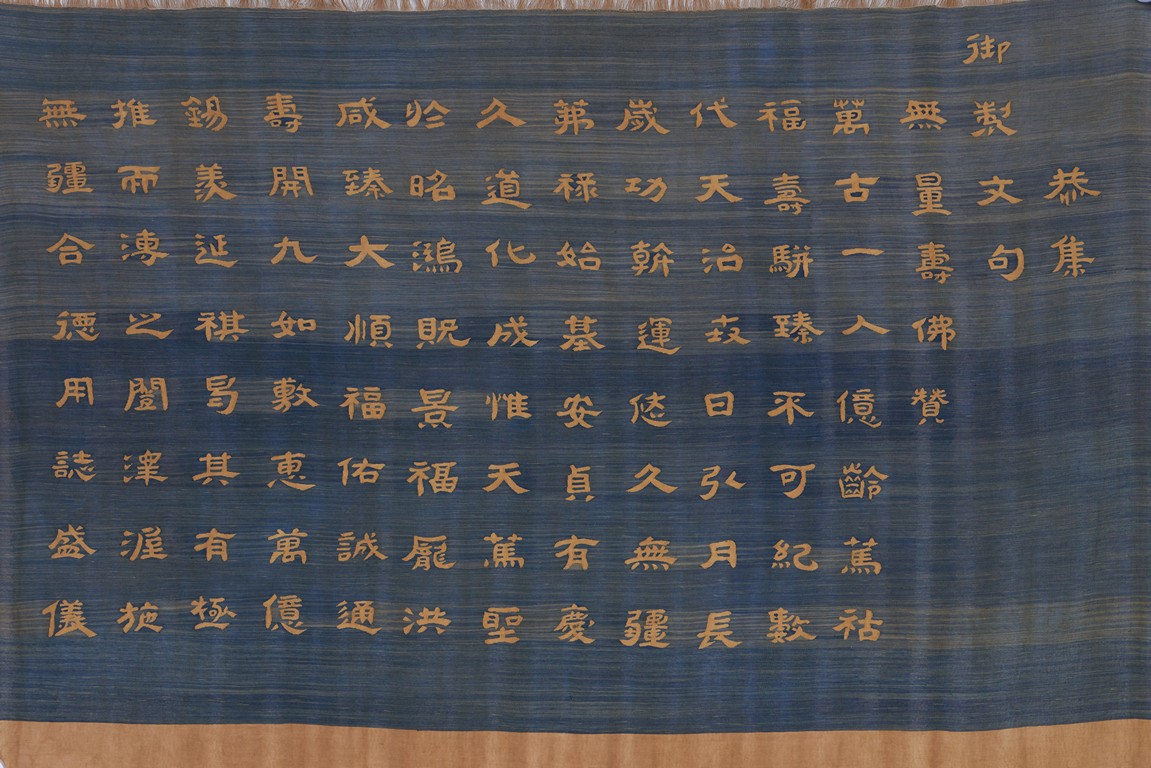 恭集
御製文句
無量壽佛贊
萬古一人億齡篤祜
福壽駢臻不可紀數
代天治世日引月長
歲功斡運悠久無疆
茀祿始基安貞有慶
久道化成惟天篤聖
於昭鴻貺景福龐洪
咸臻大順福佑誠通
壽開九如敷惠萬億
錫羨延祺曷其有極
推而溥之闓澤施
無疆合德用誌盛儀